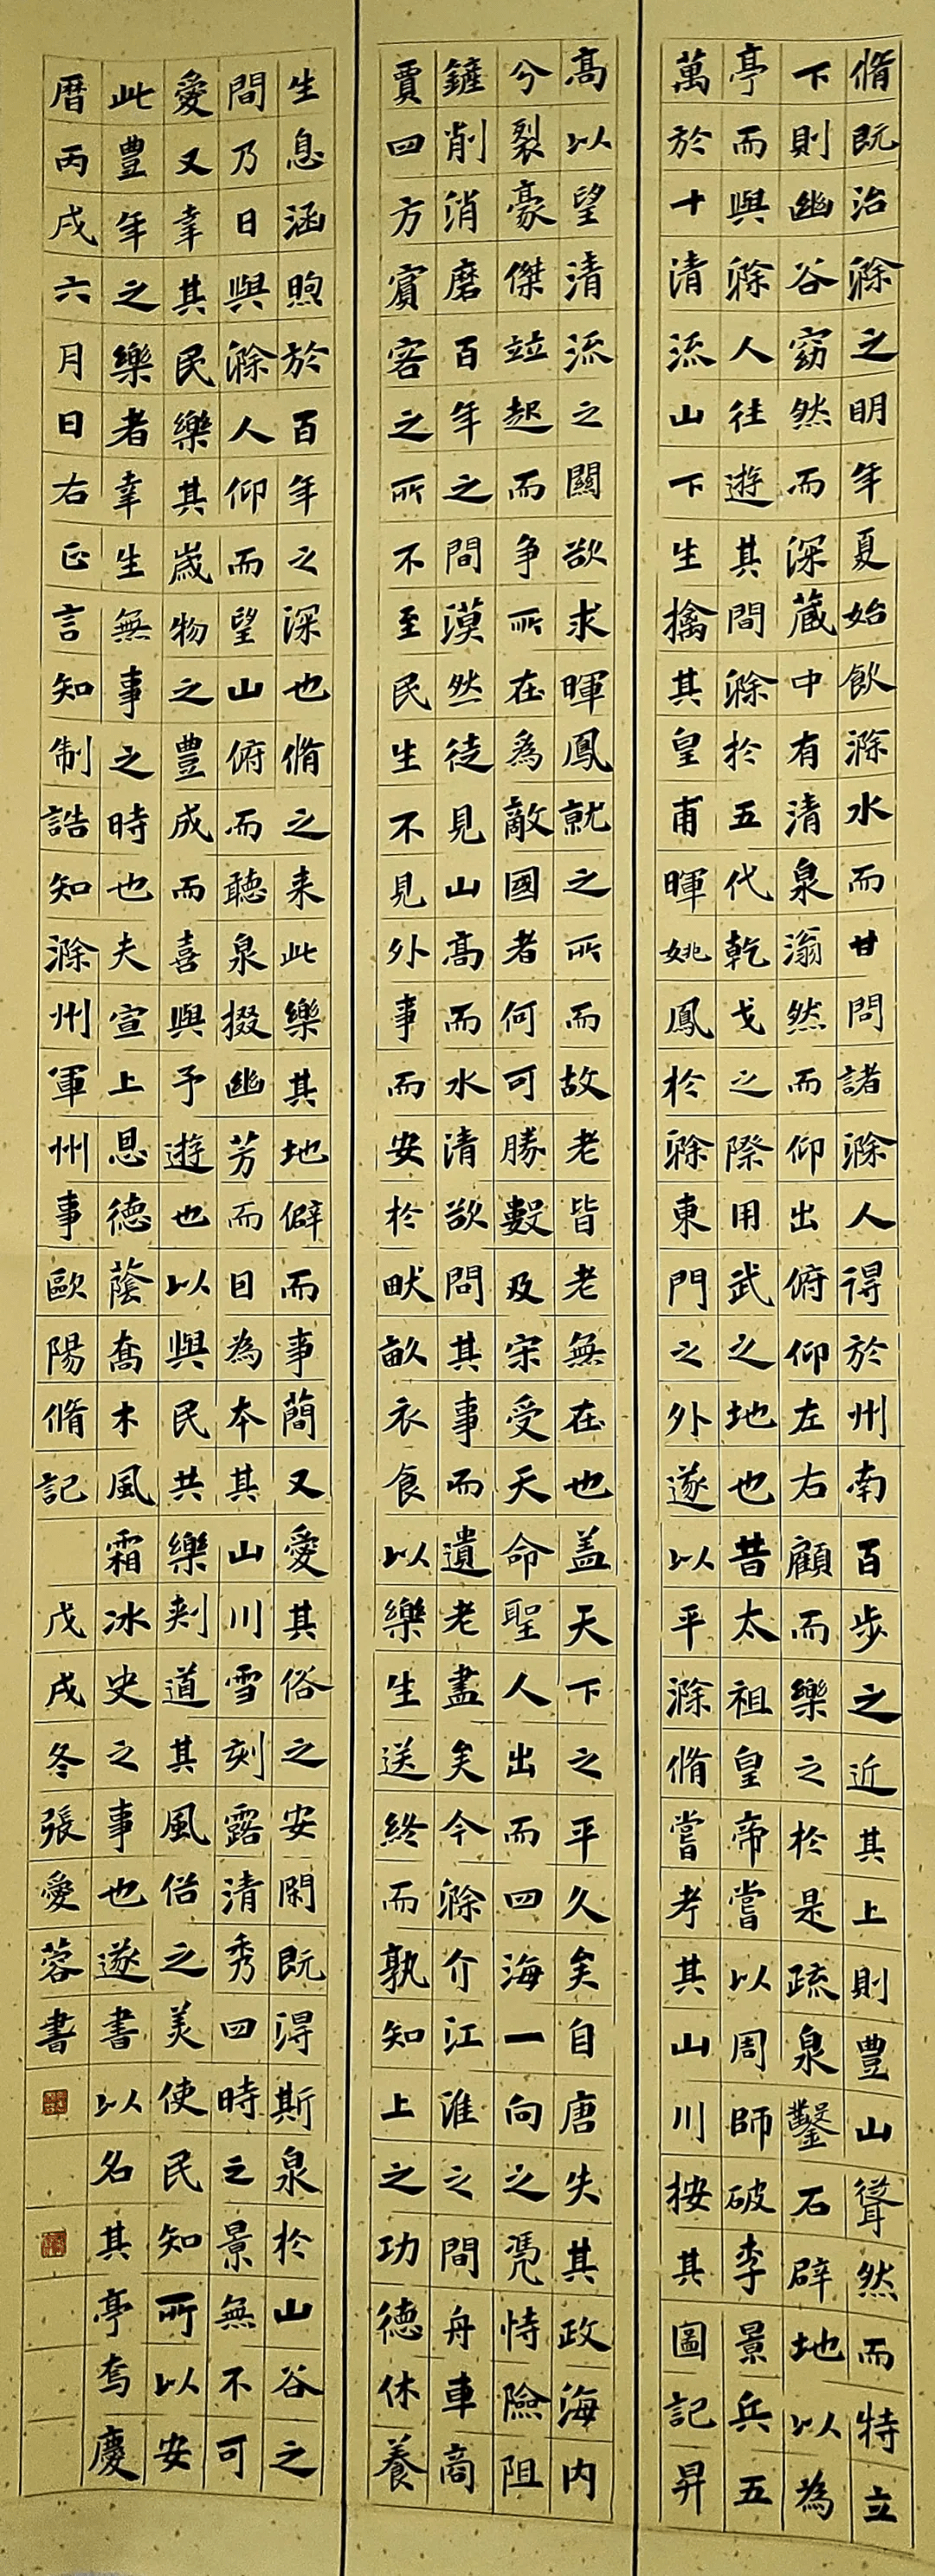 脩既治滁之明年夏始飲滁水而甘問諸滁人得於州南百步之近其上則豊山聳然而特立
下則幽谷窈然而深蔵中有清泉滃然而仰出俯仰左右顧而樂之於是疏泉鑿石辟地以為
亭而與滁人往遊其間滁於五代乾戈之際用武之地也昔太祖皇帝嘗以周師破李景兵五
萬於十清流山下生擒其皇甫暉姚鳳於滁東門之外遂以平滁脩嘗考其山川按其圖記昇
高以望清流之關欲求暉鳳就之所而故老皆老無在也盖天下之平久矣自唐失其政海内
兮裂豪傑竝起而争所在為敵國者何可勝數及宋受天命聖人出而四海一向之凴恃險阻
鏟削消磨百年之間漠然徒見山高而水清欲問其事而遺老盡矣今滁介江淮之間舟車商
賈四方賓客之所不至民生不見外事而安於畎畝衣食以樂生送終而孰知上之功德休養
生息涵煦於百年之深也脩之来此樂其地僻而事蕳又愛其俗之安閑既得斯泉於山谷之
間乃日與滁人仰而望山俯而聽泉掇幽芳而目為本其山川雪刻露清秀四時之景無不可
愛又幸其民樂其歲物之豊成而喜與予遊也以與民共樂刾道其風俗之美使民知所以安
此豊年之樂者幸生無事之時也夫宣上恩德蔭喬木風霜冰史之事也遂書以名其亭焉慶
曆丙戌六月日右正言知制誥知滁州軍州事歐陽脩記 戊戌冬張愛蓉書